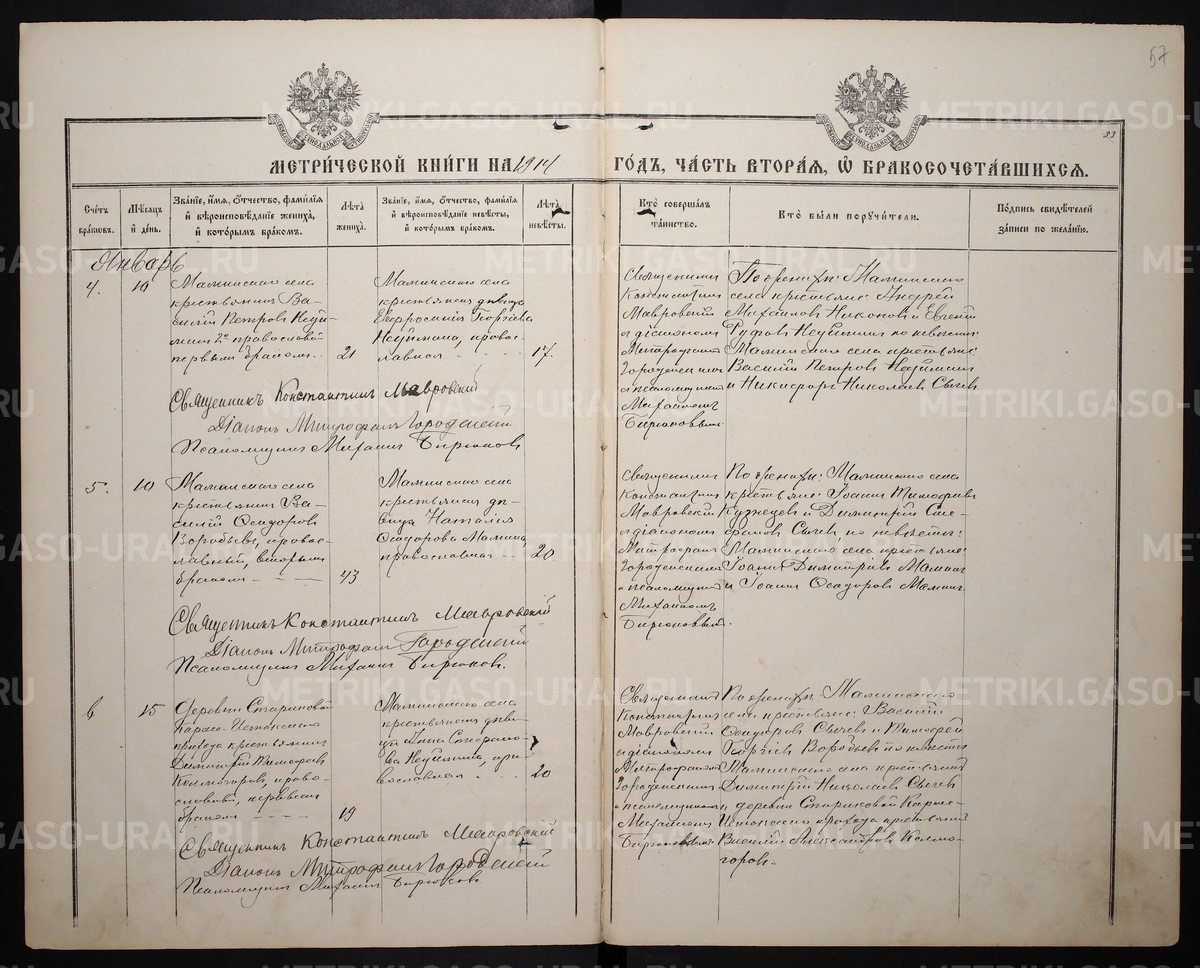 57
23
МЕТРИ́ЧЕСКОЙ КНИ́ГИ НА 1914 ГО́ДЪ, ЧА́СТЬ ВТОРА́Я, Ѡ БРАКОСОЧЕТА́ВШИХСЯ.
Сче́тъ бра́ковъ.
Мѣ́сяцъ и҆ де́нь.
Зва́нїе, и҆́мя, ѻ҆́тчество, фами́лїя и҆ вѣроисповѣ́данїе жениха̀, и҆ кото́рымъ бра́комъ.
Лѣ́та жениха̀.
Зва́нїе, и҆́мя, ѻ҆́тчество, фами́лїя и҆ вѣроисповѣ́данїе невѣ́сты, и҆ кото́рымъ бра́комъ.
Лѣ́та невѣ́сты.
Кто̀ соверша́лъ та́инство.
Кто̀ бы́ли поручи́тели.
По́дпись свидѣ́телей за́писи по жела́нїю.
Январь
4.
10
Маминскаго села
крестьянинъ Ва-
силій Петровъ Неуй-
минъ 2й православный
первымъ бракомъ
21
Маминскаго села
крестьянская дѣвица
Евфросинія Георгіева
Неуймина, право-
славная
17.
Священникъ
Константинъ
Мавровскій
съ діакономъ
Митрофаномъ
Городенскимъ
и псаломщикомъ
Михаиломъ
Бирюковымъ
По женихѣ: Маминскаго
села крестьяне Андрей
Михаиловъ Никоновъ и Евгеній
Руфовъ Неуйминъ по невѣстѣ:
Маминскаго села крестьяне:
Василій Петровъ Неуйминъ
и Никифоръ Николаевъ Сычевъ
Священникъ Константинъ Мавровскій
Діаконъ Митрофанъ Городенскій
Псаломщикъ Михаилъ Бирюковъ
5.
10
Маминскаго села
крестьянинъ Ва-
силій Ѳеодоровъ
Воробьевъ, право-
славный, вторымъ
бракомъ
43
Маминскаго села
крестьянская дѣ-
вица Наталія
Ѳеодорова Мамина
православная
20
Священникъ
Константинъ
Мавровскій
съ діакономъ
Митрофаномъ
Городенскимъ
и псаломщикомъ
Михаиломъ
Бирюковымъ.
По женихѣ: Маминскаго села
крестьяне: Іоаннъ Тимофеевъ
Кузнецовъ и Димитрій Сте-
фановъ Сычевъ, по невѣстѣ:
Маминскаго села крестьяне:
Іоаннъ Димитріевъ Маминъ
и Іоаннъ Ѳеодоровъ Маминъ
Священникъ Константинъ Мавровскій
Діаконъ Митрофанъ Городенскій
Псаломщикъ Михаилъ Бирюковъ.
6
15
Деревни Стариковой
Карасье-Истокскаго
прихода крестьянинъ
Димитрій Тимофеевъ
Колмогоровъ, право-
славный, первымъ
бракомъ
19
Маминскаго села
крестьянская дѣви-
ца Анна
Неуймина, пра-
вославная
20
Священникъ
Константинъ
Мавровскій
съ діакономъ
Митрофаномъ
Городенскимъ
и псаломщикомъ
Михаиломъ
Бирюковымъ
По женихѣ: Маминскаго
села крестьяне: Василій
Ѳеодоровъ Сычевъ и Тимофей
Георгіевъ Воробьевъ по невѣстѣ
Маминскаго села крестьянинъ
Димитрій Николаевъ Сычевъ
и, деревни Стариковой Карасье-
Истокскаго прихода крестьянинъ
Василій Александровъ Колмо-
горовъ.
Священникъ Константинъ Мавровскій
Діаконъ Митрофанъ Городенскій
Псаломщикъ Михаилъ Бирюковъ
METRIKI.GASO-URAL.RU